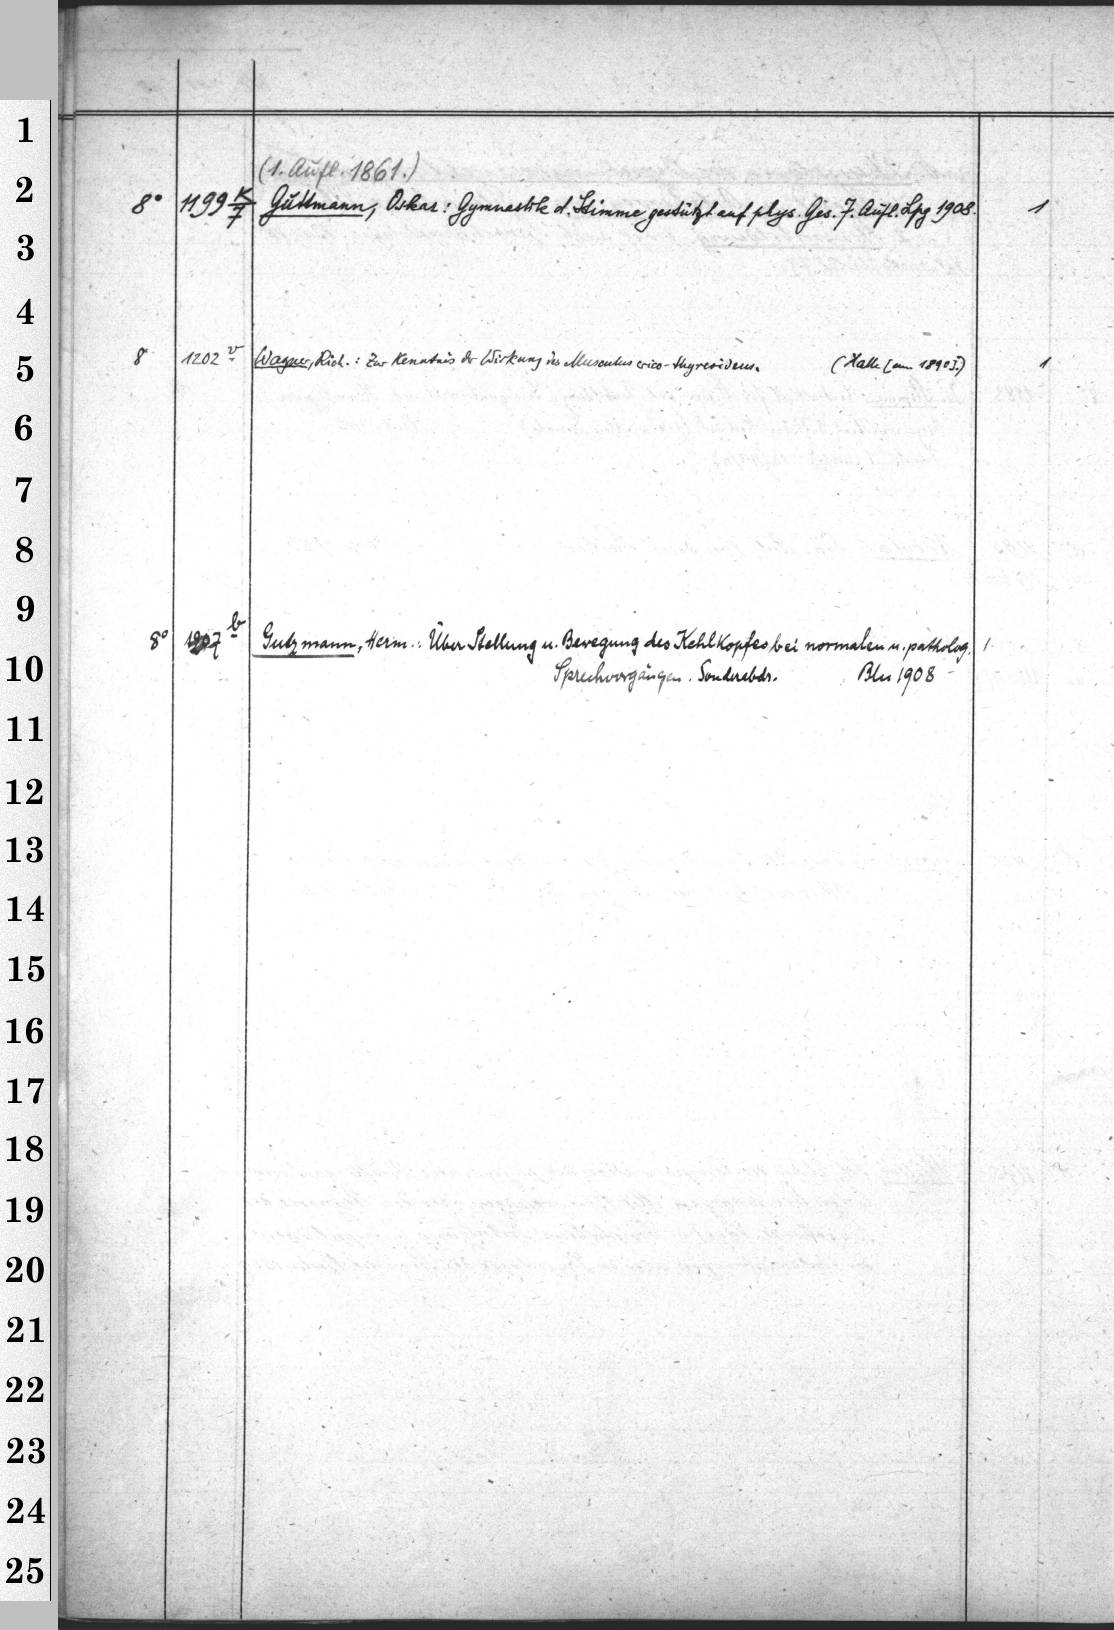 1
2
3
4
5
6
7
8
9
10
11
12
13
14
15
16
17
18
19
20
21
22
23
24
25
(1. Aufl. 1861.)
8° 1199 K/7 Guttmann, Oskar: Gymnastik d. Stimme gestützt auf phys. Ges. 7. Aufl. Lpg 1908. 1
8 1202 v Wagner, Rich.: Zur Kenntnis der Wirkung des Musculus crico-thyreoideus. (Halle [um 1890].) 1
8° 1207 b Gutzmann, Herm.: Über Stellung u. Bewegung des Kehlkopfes bei normalen u. patholog. 1
Sprechvorgängen. Sonderabdr. Bln 1908